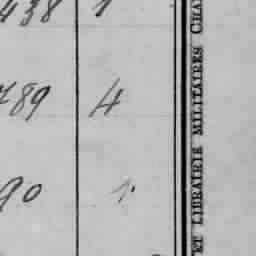 438 1
789 4
90 1.
ET LIBRAIRIE MILITAIRES CHA